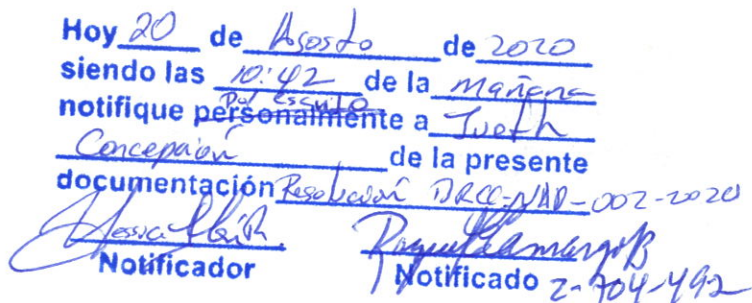 Hoy 20 de Agosto de 2020
siendo las 10:42 de la mañana
Por escrito
notifique personalmente a Iveth
Concepción de la presente
documentación Resolución DRCC-NAD-002-2020
Notificador Notificado 2-704-492